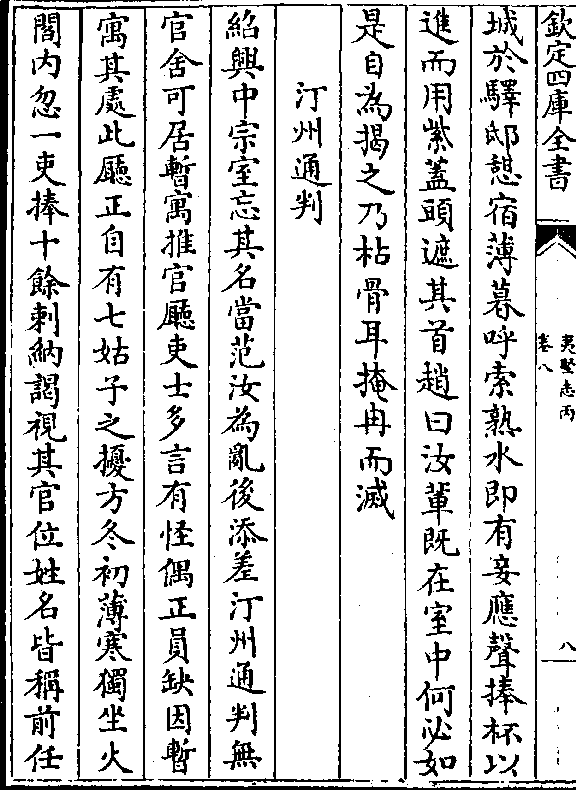 欽定四庫全書
夷堅志丙
卷八
八
城於驛邸憩宿薄暮呼索熟水即有妾應聲捧杯以
進而用紫蓋頭遮其首趙曰汝輩既在室中何必如
是自為揭之乃枯骨耳掩冉而滅
汀州通判
紹興中宗室忘其名當范汝為亂後添差汀州通判無
官舍可居暫寓推官廳吏士多言有怪偶正員缺因暫
寓其處此廳正自有七姑子之擾方冬初薄寒獨坐火
閤内忽一吏捧十餘刺納謁視其官位姓名皆稱前任